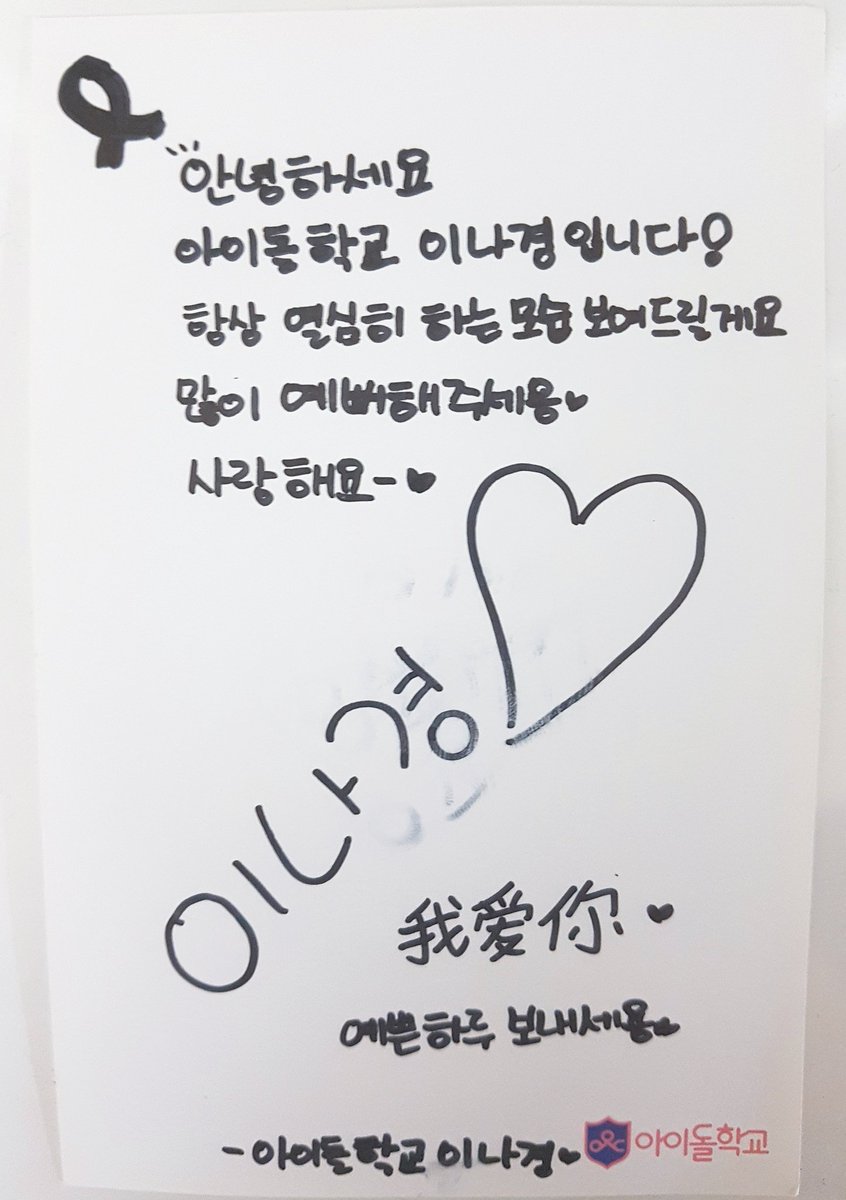 안녕하세요
아이돌학교 이나경입니다!
항상 열심히 하는 모습 보여드릴게요
많이 예뻐해주세용♥
사랑해요-♥
이나경♡
我爱你♥
예쁜하루 보내세용♥
-아이돌학교 이나경♥
아이돌학교